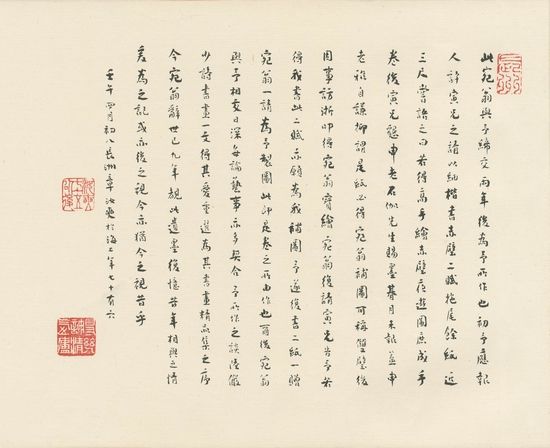 此宛翁與予締交兩年後為予所作也初予應報
人許寅先之請以納楷書赤壁二賦拖尾餘紙近
三尺嘗語之曰若得高手繪赤壁夜遊圖庶成手
卷後寅先懇申老石伽先生賜墨暮月未就蓋申
老雅自謙抑謂是紙必得宛翁補圖可稱雙璧後
因事訪浙叩得宛翁繪宛翁後請寅先告予若
得我書此二賦亦願為我補圖予遂復書二紙一贈
宛翁一請為予製圖此即是卷之所由作也爾後宛翁
與予相交日深每論藝事亦多契合予所作之談陸儼
少詩書畫一文得其愛重遂為其書畫精品集之序
今宛翁辭世已九年覩此遺墨復憶昔年相與之情
爰為之記或亦後之視今亦猶今之視昔乎
壬午四月初八長洲章汝奭於海上年七十有六